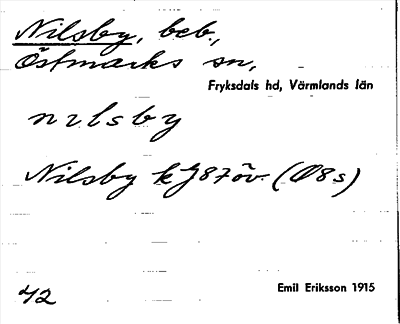 Nilsby, beb.,
Östmarks sn,
Fryksdals hd, Värmlands län
nılsby
Nilsby kJ87öv. (Ø8s)
42
Emil Eriksson 1915